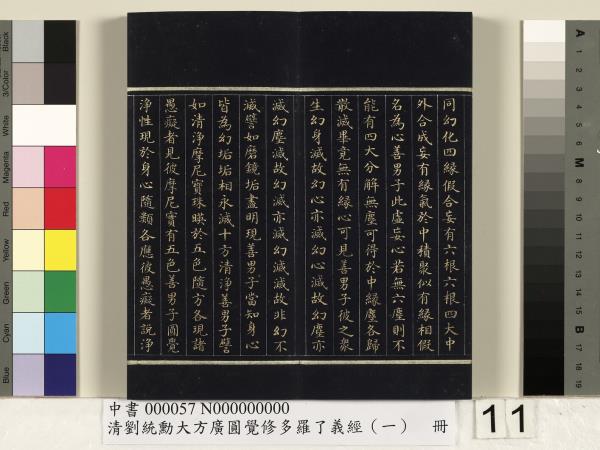 同幻化四緣假合妄有六根六根四大中
外合成妄有緣氣於中積聚似有緣相假
名為心善男子此虛妄心若無六塵則不
能有四大分解無塵可得於中緣塵各歸
散滅畢竟無有緣心可見善男子彼之衆
生幻身滅故幻心亦滅幻心滅故幻塵亦
滅幻塵滅故幻滅亦滅幻滅滅故非幻不
滅譬如磨鏡垢盡明現善男子當知身心
皆為幻垢垢相永滅十方清淨善男子譬
如清淨摩尼寶珠暎於五色隨方各現諸
愚癡者見彼摩尼實有五色善男子圓覺
淨性現於身心隨類各應彼愚癡者說淨
中書 000057 N000000000
清劉統勳大方廣圓覺修多羅了義經（一） 冊
11
Black
3/Color
White
Magenta
Red
Yellow
Green
Cyan
Blue
A
1
2
3
4
5
6
M
8
9
10
11
12
13
14
15
B
17
18
19